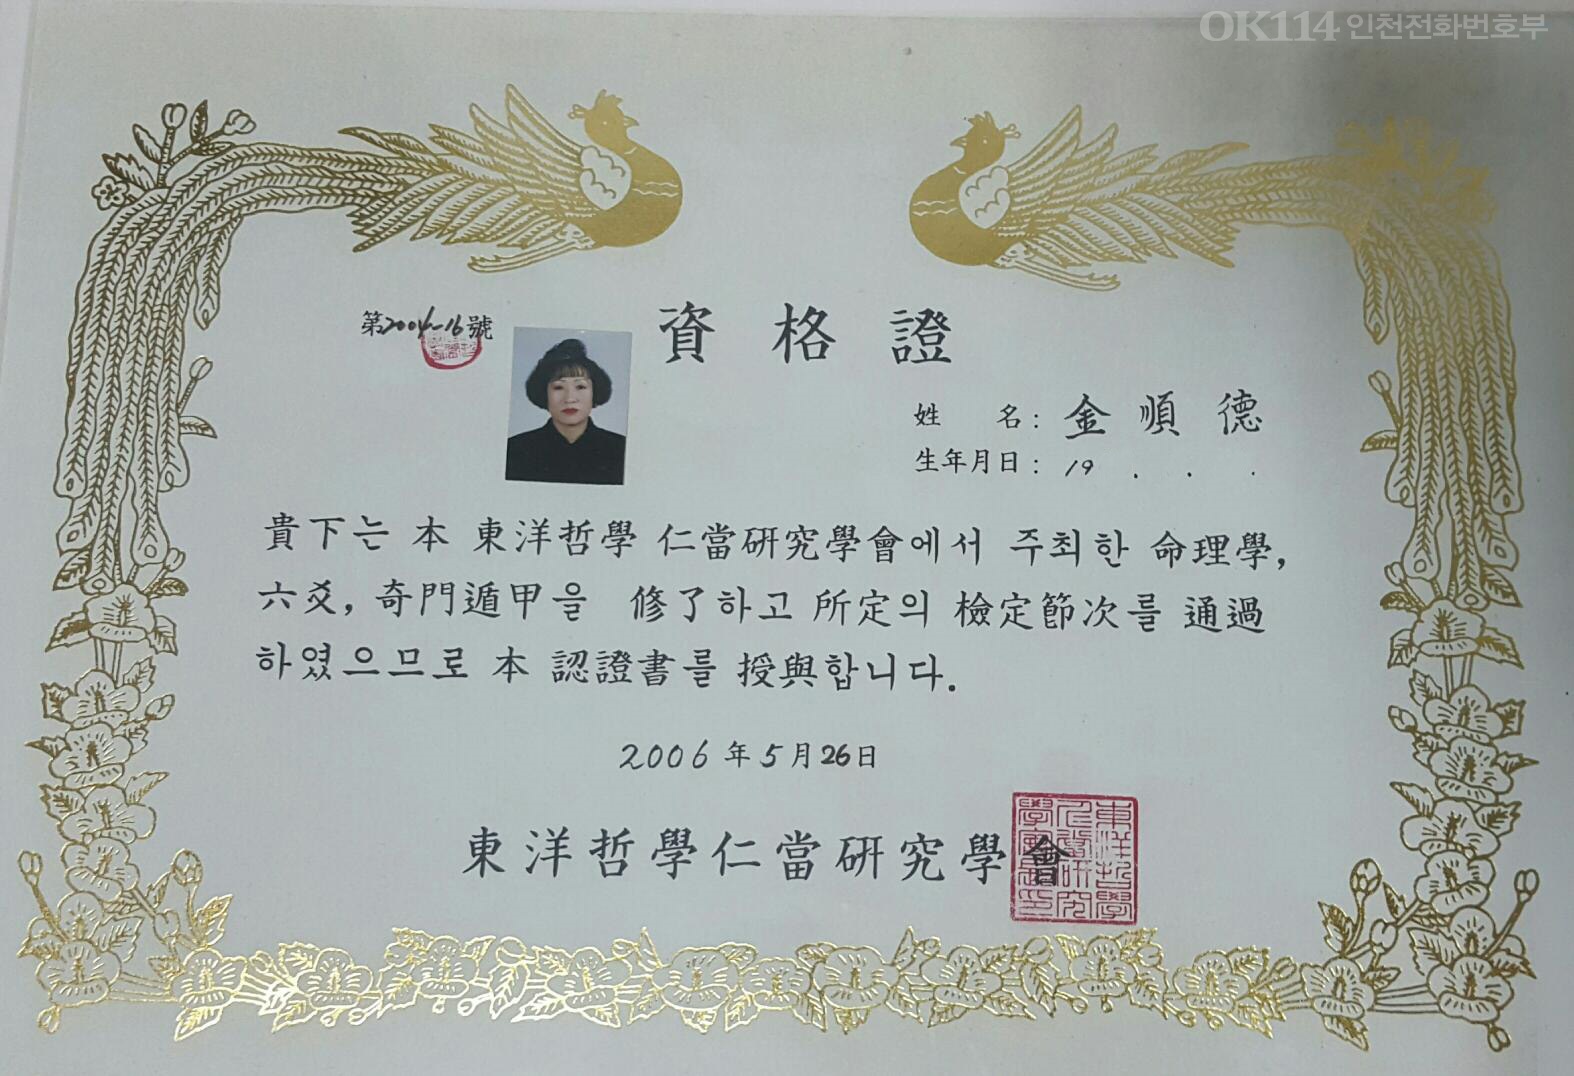 OK114 인천전화번호부
第2004-16號
資格證
姓 名: 金順德
生年月日: 19 . . .
貴下는 本 東洋哲學 仁當硏究學會에서 주최한 命理學,
六爻, 奇門遁甲을 修了하고 所定의 檢定節次를 通過
하였으므로 本 認證書를 授與합니다.
2006年 5月 26日
東洋哲學仁當硏究學會